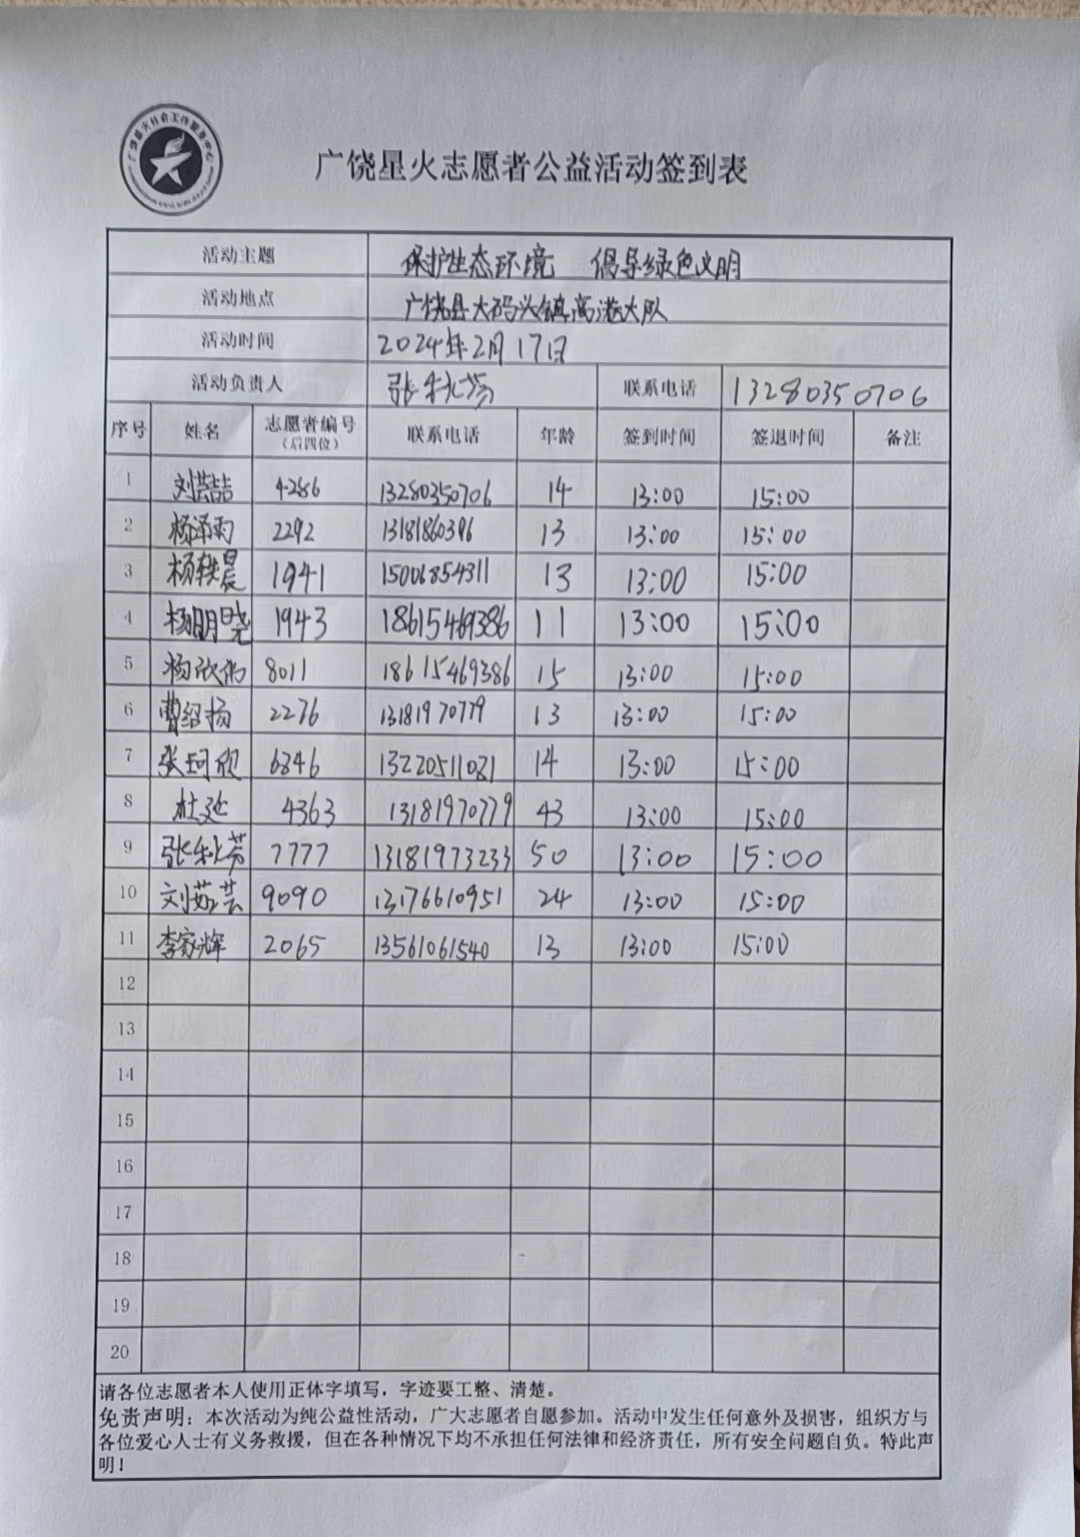 广饶星火社会工作服务中心
广饶星火志愿者公益活动签到表
活动主题 保护生态环境 倡导绿色文明
活动地点 广饶县大码头镇高港大队
活动时间 2024年2月17日
活动负责人 张秋芬 联系电话 13280350706
序号 姓名 志愿者编号（后四位） 联系电话 年龄 签到时间 签退时间 备注
1 刘喆 4286 13280350706 14 13:00 15:00
2 杨泽雨 2292 13181860396 13 13:00 15:00
3 杨轶晨 1941 15006854311 13 13:00 15:00
4 杨明晓 1943 18615469386 11 13:00 15:00
5 杨欣 8011 18615469386 15 13:00 15:00
6 曹绍扬 2276 13181970779 13 13:00 15:00
7 张珂欣 6346 13220511081 14 13:00 15:00
8 杜延 4363 13181970779 43 13:00 15:00
9 张秋芬 7777 13181973233 50 13:00 15:00
10 刘茹芸 9090 13176610951 24 13:00 15:00
11 李家辉 2065 13561061540 13 13:00 15:00
12
13
14
15
16
17
18
19
20
请各位志愿者本人使用正体字填写，字迹要工整、清楚。
免责声明：本次活动为纯公益性活动，广大志愿者自愿参加。活动中发生任何意外及损害，组织方与
各位爱心人士有义务救援，但在各种情况下均不承担任何法律和经济责任，所有安全问题自负。特此声
明！